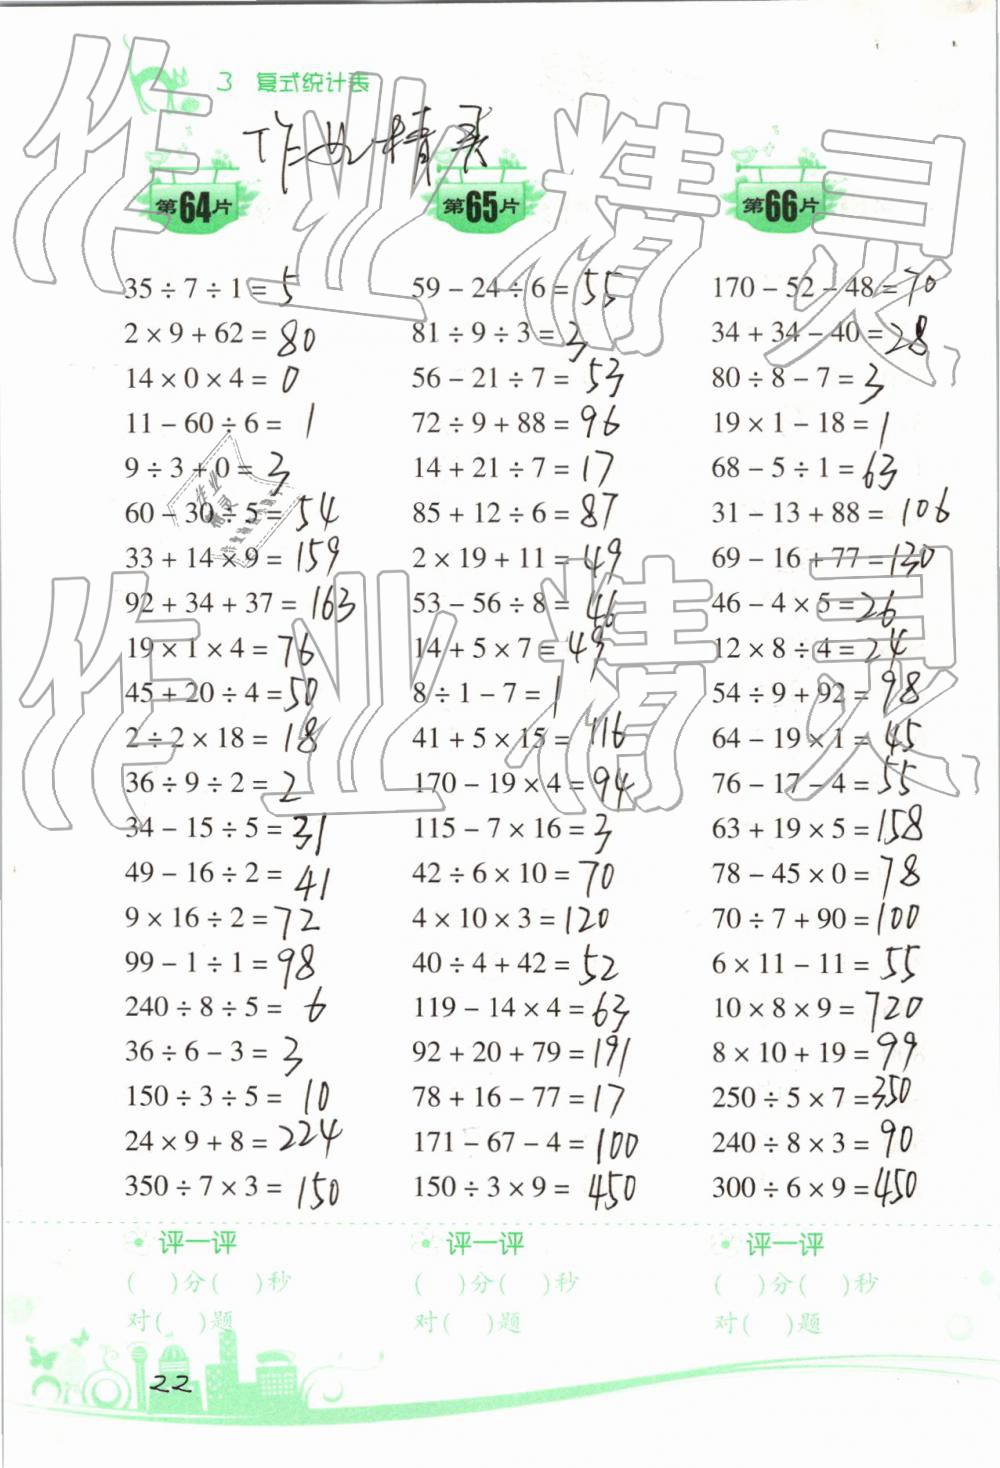 3 复式统计表
作业精灵
第64片
35 ÷ 7 ÷ 1 = 5
2 × 9 + 62 = 80
14 × 0 × 4 = 0
11 − 60 ÷ 6 = 1
9 ÷ 3 + 0 = 3
60 − 30 ÷ 5 = 54
33 + 14 × 9 = 159
92 + 34 + 37 = 163
19 × 1 × 4 = 76
45 + 20 ÷ 4 = 50
2 ÷ 2 × 18 = 18
36 ÷ 9 ÷ 2 = 2
34 − 15 ÷ 5 = 31
49 − 16 ÷ 2 = 41
9 × 16 ÷ 2 = 72
99 − 1 ÷ 1 = 98
240 ÷ 8 ÷ 5 = 6
36 ÷ 6 − 3 = 3
150 ÷ 3 ÷ 5 = 10
24 × 9 + 8 = 224
350 ÷ 7 × 3 = 150
评一评
( )分( )秒
对( )题
第65片
59 − 24 ÷ 6 = 55
81 ÷ 9 ÷ 3 = 3
56 − 21 ÷ 7 = 53
72 ÷ 9 + 88 = 96
14 + 21 ÷ 7 = 17
85 + 12 ÷ 6 = 87
2 × 19 + 11 = 49
53 − 56 ÷ 8 = 46
14 + 5 × 7 = 49
8 ÷ 1 − 7 = 1
41 + 5 × 15 = 116
170 − 19 × 4 = 94
115 − 7 × 16 = 3
42 ÷ 6 × 10 = 70
4 × 10 × 3 = 120
40 ÷ 4 + 42 = 52
119 − 14 × 4 = 63
92 + 20 + 79 = 191
78 + 16 − 77 = 17
171 − 67 − 4 = 100
150 ÷ 3 × 9 = 450
评一评
( )分( )秒
对( )题
第66片
170 − 52 − 48 = 70
34 + 34 − 40 = 28
80 ÷ 8 − 7 = 3
19 × 1 − 18 = 1
68 − 5 ÷ 1 = 63
31 − 13 + 88 = 106
69 − 16 + 77 = 130
46 − 4 × 5 = 26
12 × 8 ÷ 4 = 24
54 ÷ 9 + 92 = 98
64 − 19 × 1 = 45
76 − 17 − 4 = 55
63 + 19 × 5 = 158
78 − 45 × 0 = 78
70 ÷ 7 + 90 = 100
6 × 11 − 11 = 55
10 × 8 × 9 = 720
8 × 10 + 19 = 99
250 ÷ 5 × 7 = 350
240 ÷ 8 × 3 = 90
300 ÷ 6 × 9 = 450
评一评
( )分( )秒
对( )题
22
作业精灵
作业精灵
作业精灵